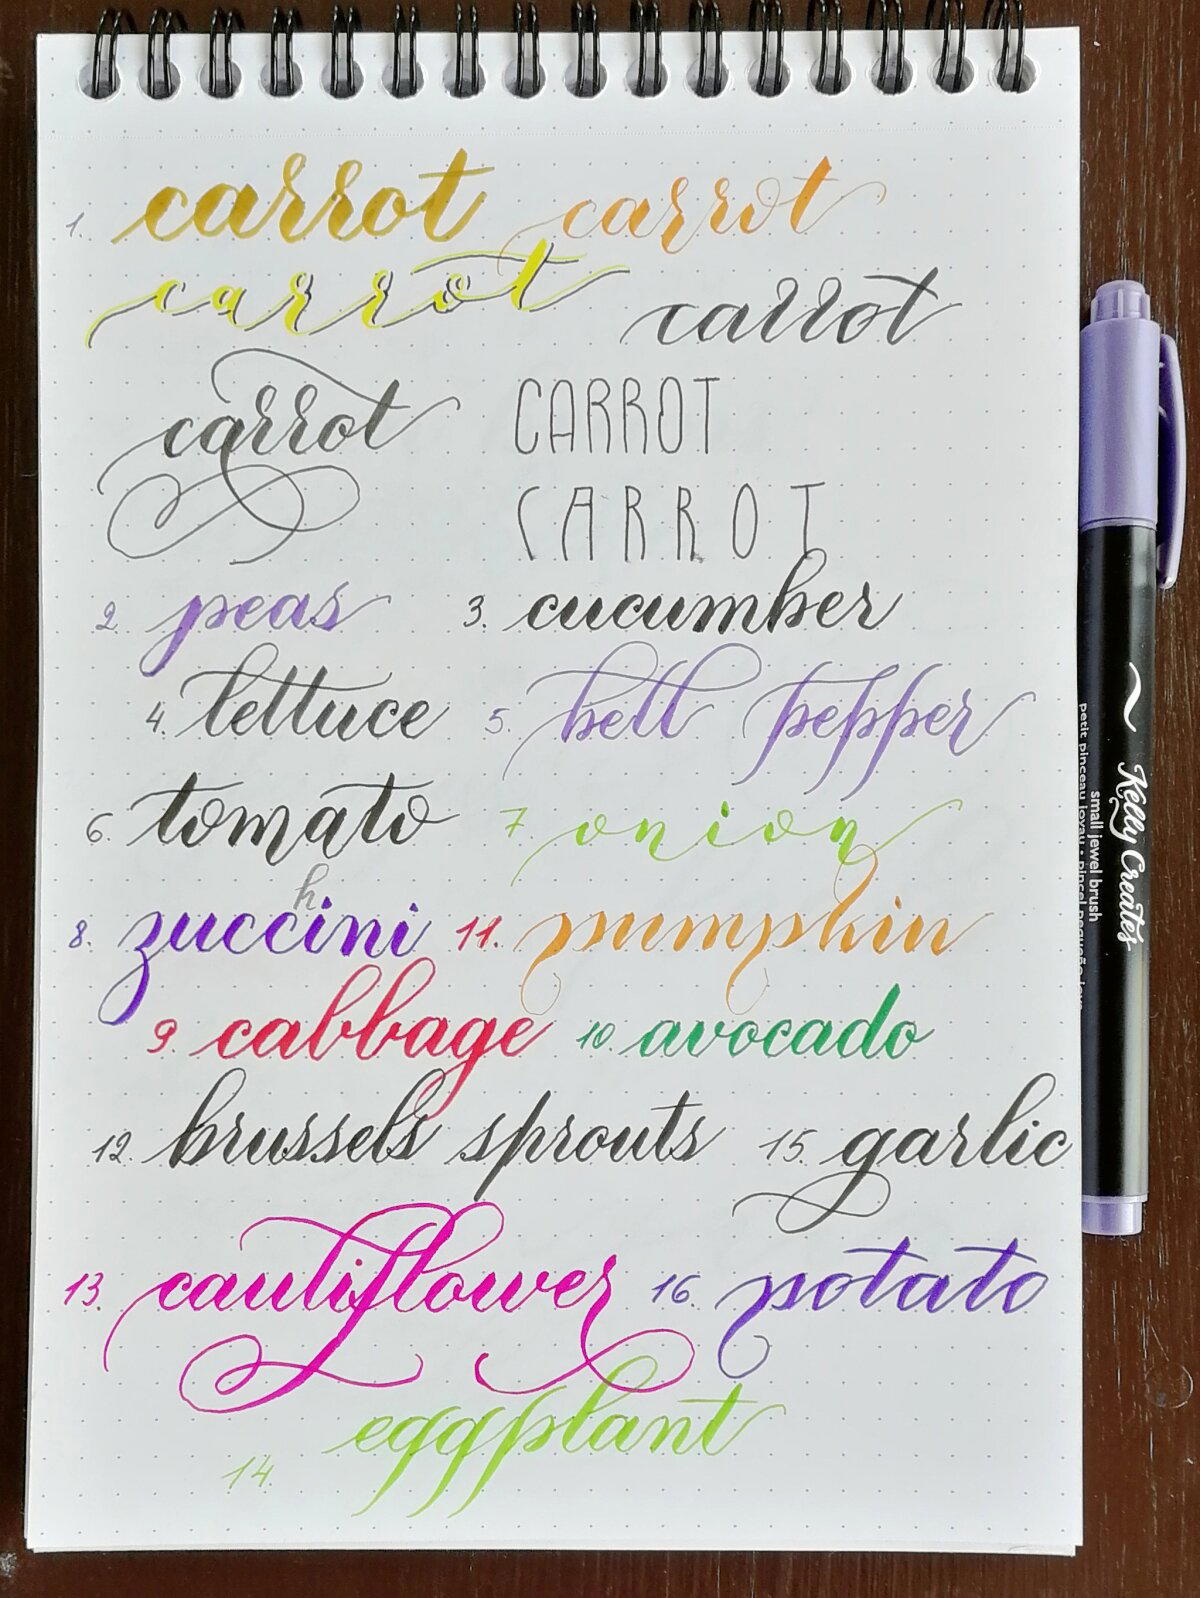 1. carrot carrot
carrot carrot
carrot CARROT
CARROT
2. peas 3. cucumber
4. lettuce 5. bell pepper
6. tomato 7. onion
h
8. zuccini 11. pumpkin
9. cabbage 10. avocado
12. brussels sprouts 15. garlic
13. cauliflower 16. potato
14 eggplant
Kelly Creates
small jewel brush
petit pinceau joyau • pincel pequeño joya